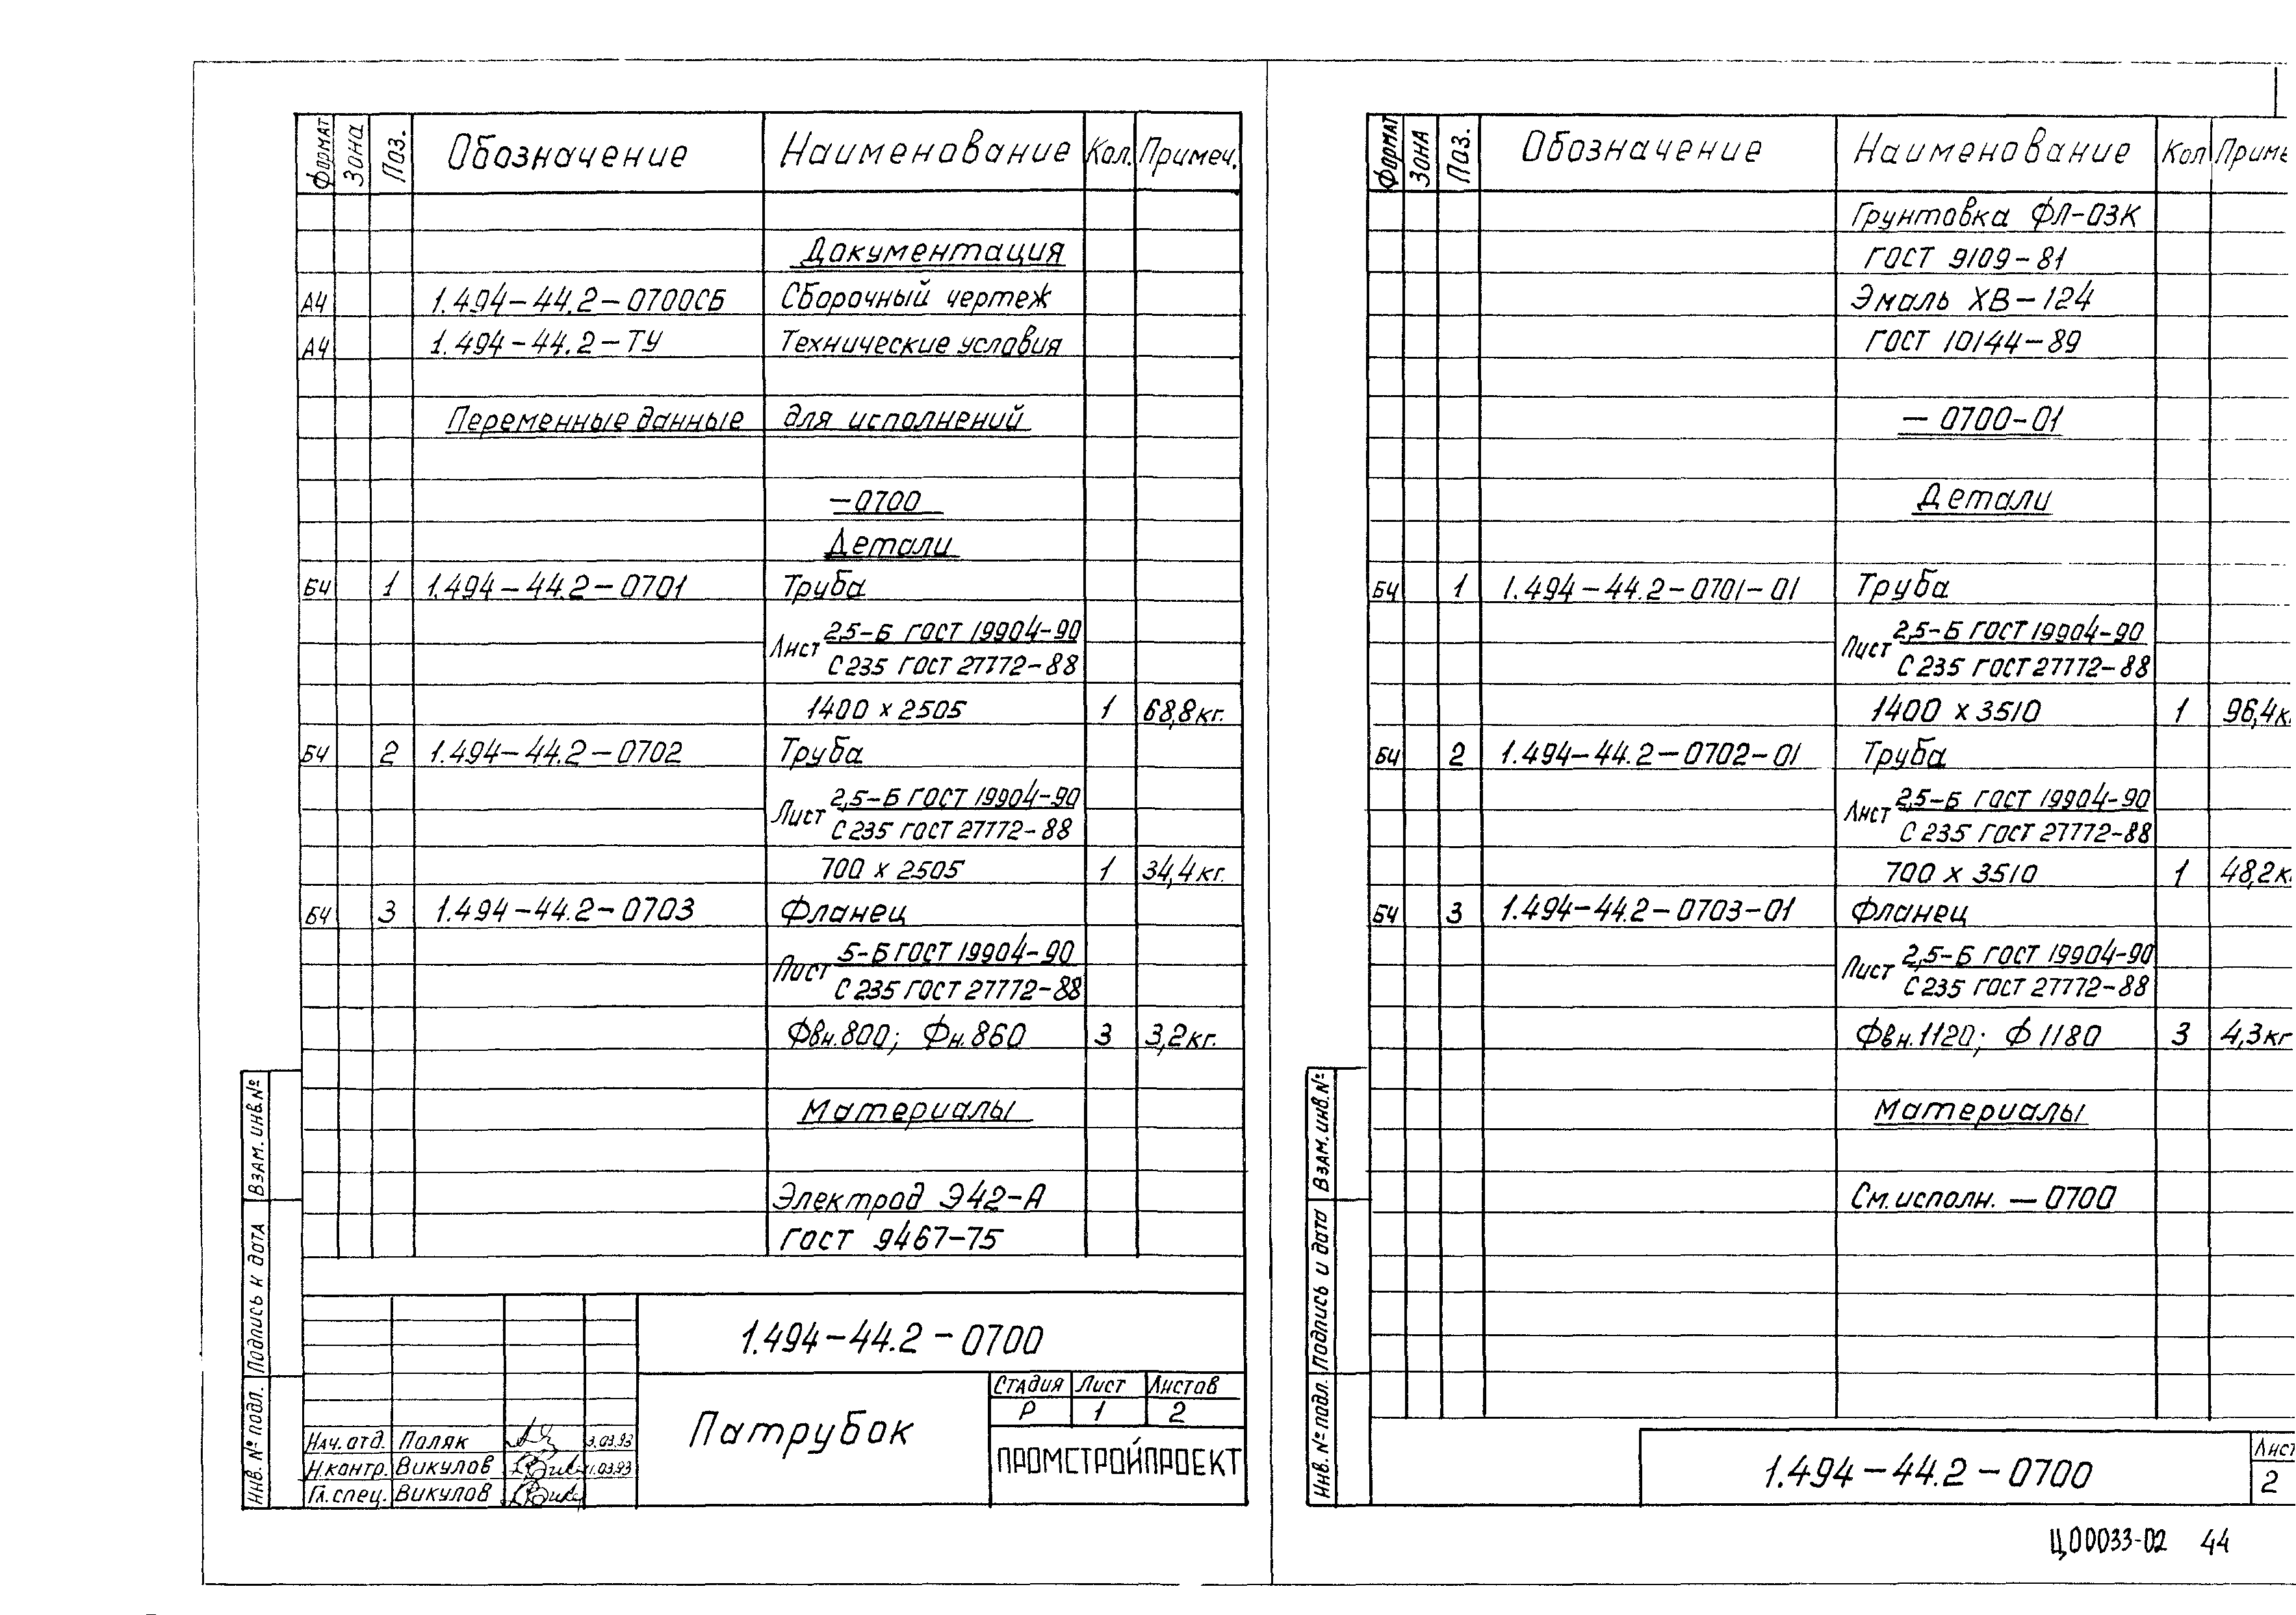 Формат Зона Поз. Обозначение Наименование Кол. Примеч.
Документация
А4 1.494-44.2-0700СБ Сборочный чертеж
А4 1.494-44.2-ТУ Технические условия
Переменные данные для исполнений
-0700
Детали
БЧ 1 1.494-44.2-0701 Труба
Лист 2,5-Б ГОСТ 19904-90
С 235 ГОСТ 27772-88
1400 х 2505 1 68,8 кг.
БЧ 2 1.494-44.2-0702 Труба
Лист 2,5-Б ГОСТ 19904-90
С 235 ГОСТ 27772-88
700 х 2505 1 34,4 кг.
БЧ 3 1.494-44.2-0703 Фланец
Лист 5-Б ГОСТ 19904-90
С 235 ГОСТ 27772-88
Фвн. 800; Фн. 860 3 3,2 кг.
Материалы
Электрод Э42-А
ГОСТ 9467-75
Взам. инв. №
Подпись и дата
Инв. № подл.
1.494-44.2-0700
Патрубок
Стадия Лист Листов
Р 1 2
ПРОМСТРОЙПРОЕКТ
Нач. отд. Поляк 03.93
Н.контр. Викулов 03.93
Гл. спец. Викулов
Формат Зона Поз. Обозначение Наименование Кол Приме
Грунтовка ФЛ-03К
ГОСТ 9109-81
Эмаль ХВ-124
ГОСТ 10144-89
-0700-01
Детали
БЧ 1 1.494-44.2-0701-01 Труба
Лист 2,5-Б ГОСТ 19904-90
С 235 ГОСТ 27772-88
1400 х 3510 1 96,4 к
БЧ 2 1.494-44.2-0702-01 Труба
Лист 2,5-Б ГОСТ 19904-90
С 235 ГОСТ 27772-88
700 х 3510 1 48,2 к
БЧ 3 1.494-44.2-0703-01 Фланец
Лист 2,5-Б ГОСТ 19904-90
С 235 ГОСТ 27772-88
Фвн. 1120; Ф 1180 3 4,3 кг
Материалы
См. исполн. - 0700
Взам. инв. №
Подпись и дата
Инв. № подл.
1.494-44.2-0700
Лист
2
Ц00033-02 44